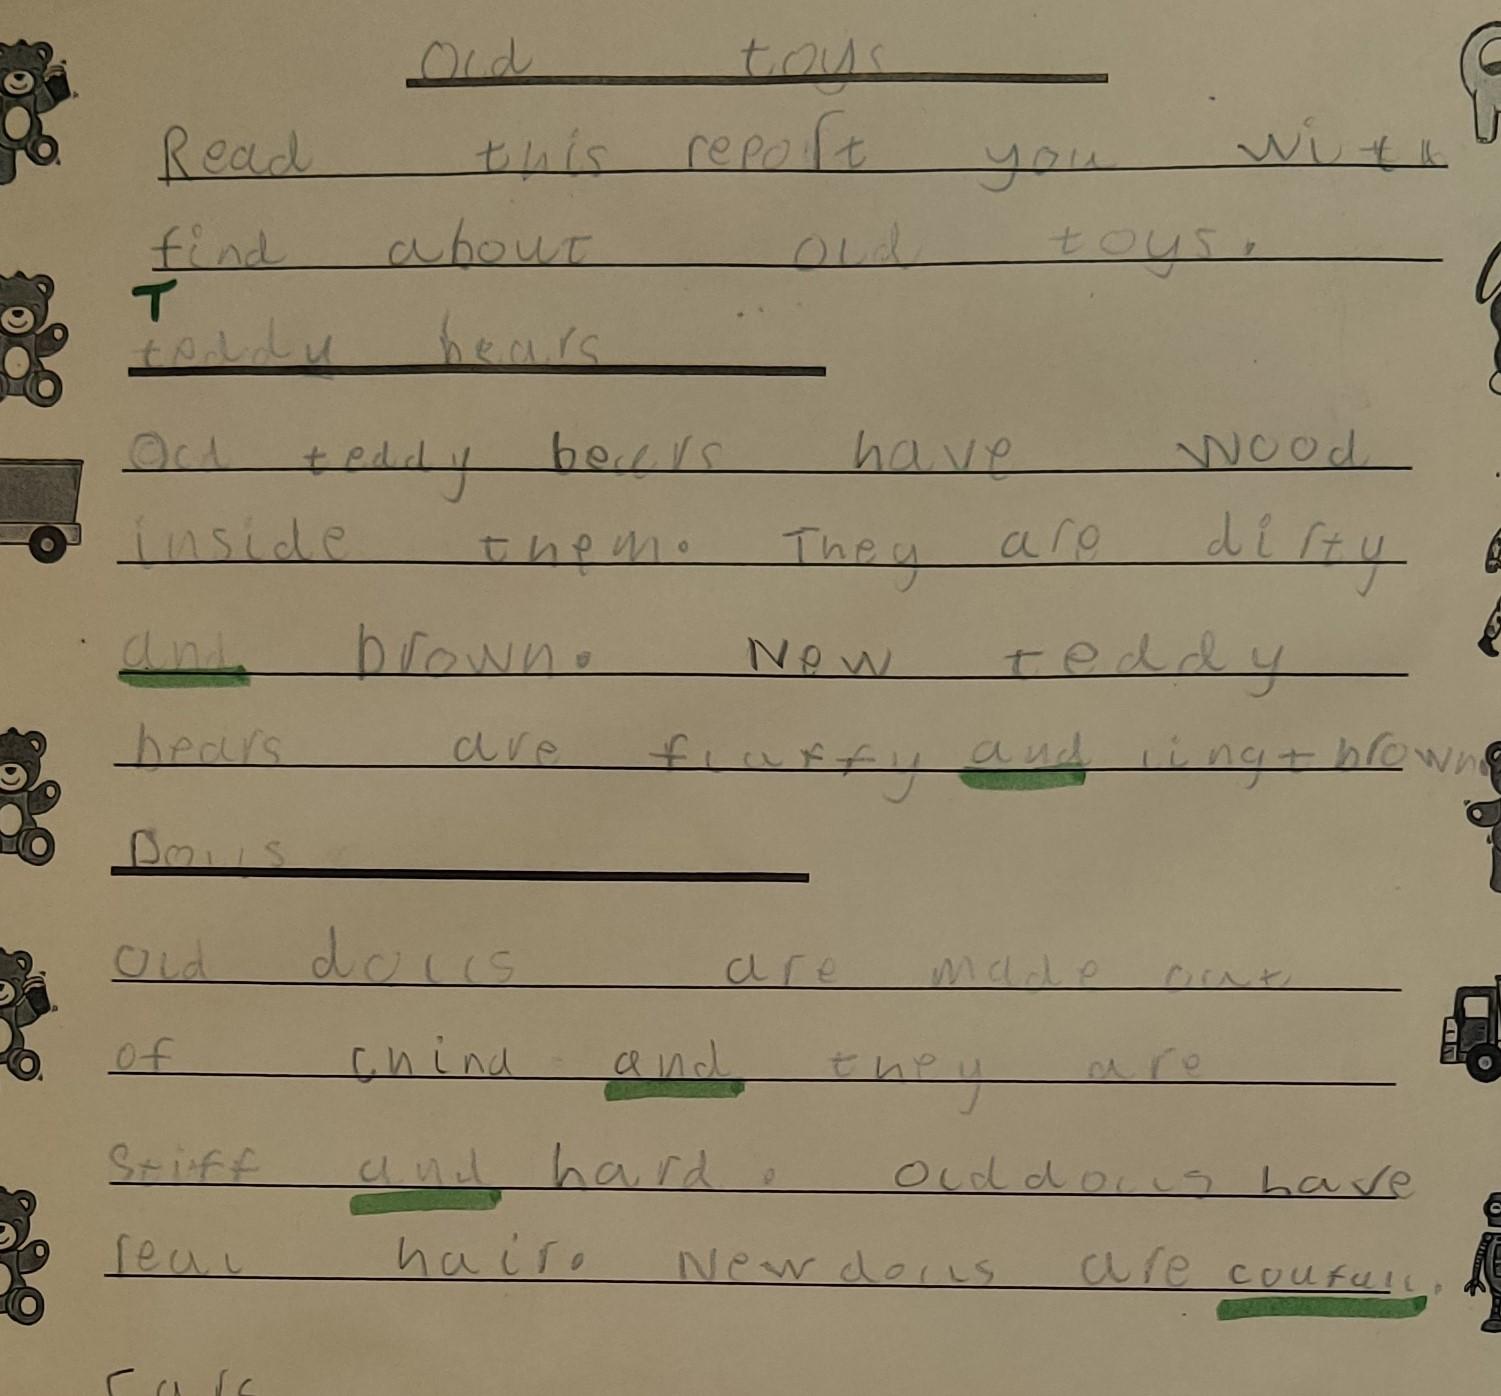 Old toys
Read this report you will
find about old toys.
T
teddy bears
Old teddy bears have wood
inside them. They are dirty
and brown. New teddy
bears are fluffy and lingt brown.
Dolls
Old dolls are made out
of china and they are
Stiff and hard. Old dolls have
real hair. New dolls are
Cars